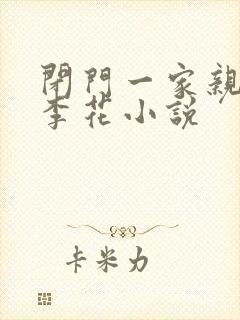 閉門一家親
李花小說
卡米力